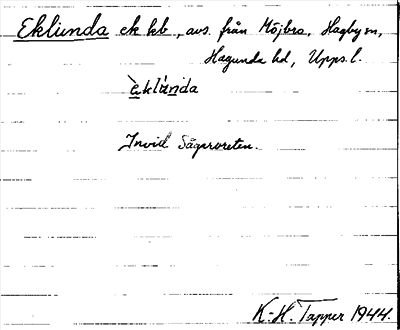 Eklunda ck kb, avs. från Möjbro, Hagby sn,
Hagunda hd, Upps. l.
èklúnda
Invid Sågarvreten.
K.-H. Tapper 1944.